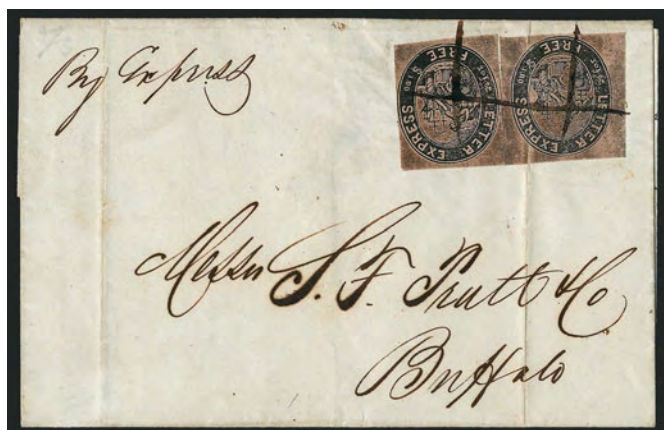 By Express
LETTER EXPRESS
FREE
LETTER EXPRESS
FREE
Messrs S. F. Pratt & Co
Buffalo